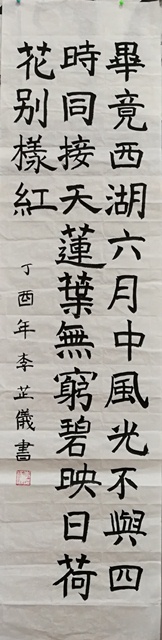 畢竟西湖六月中風光不與四
時同接天蓮葉無窮碧映日荷
花别樣紅
丁酉年李芷儀書